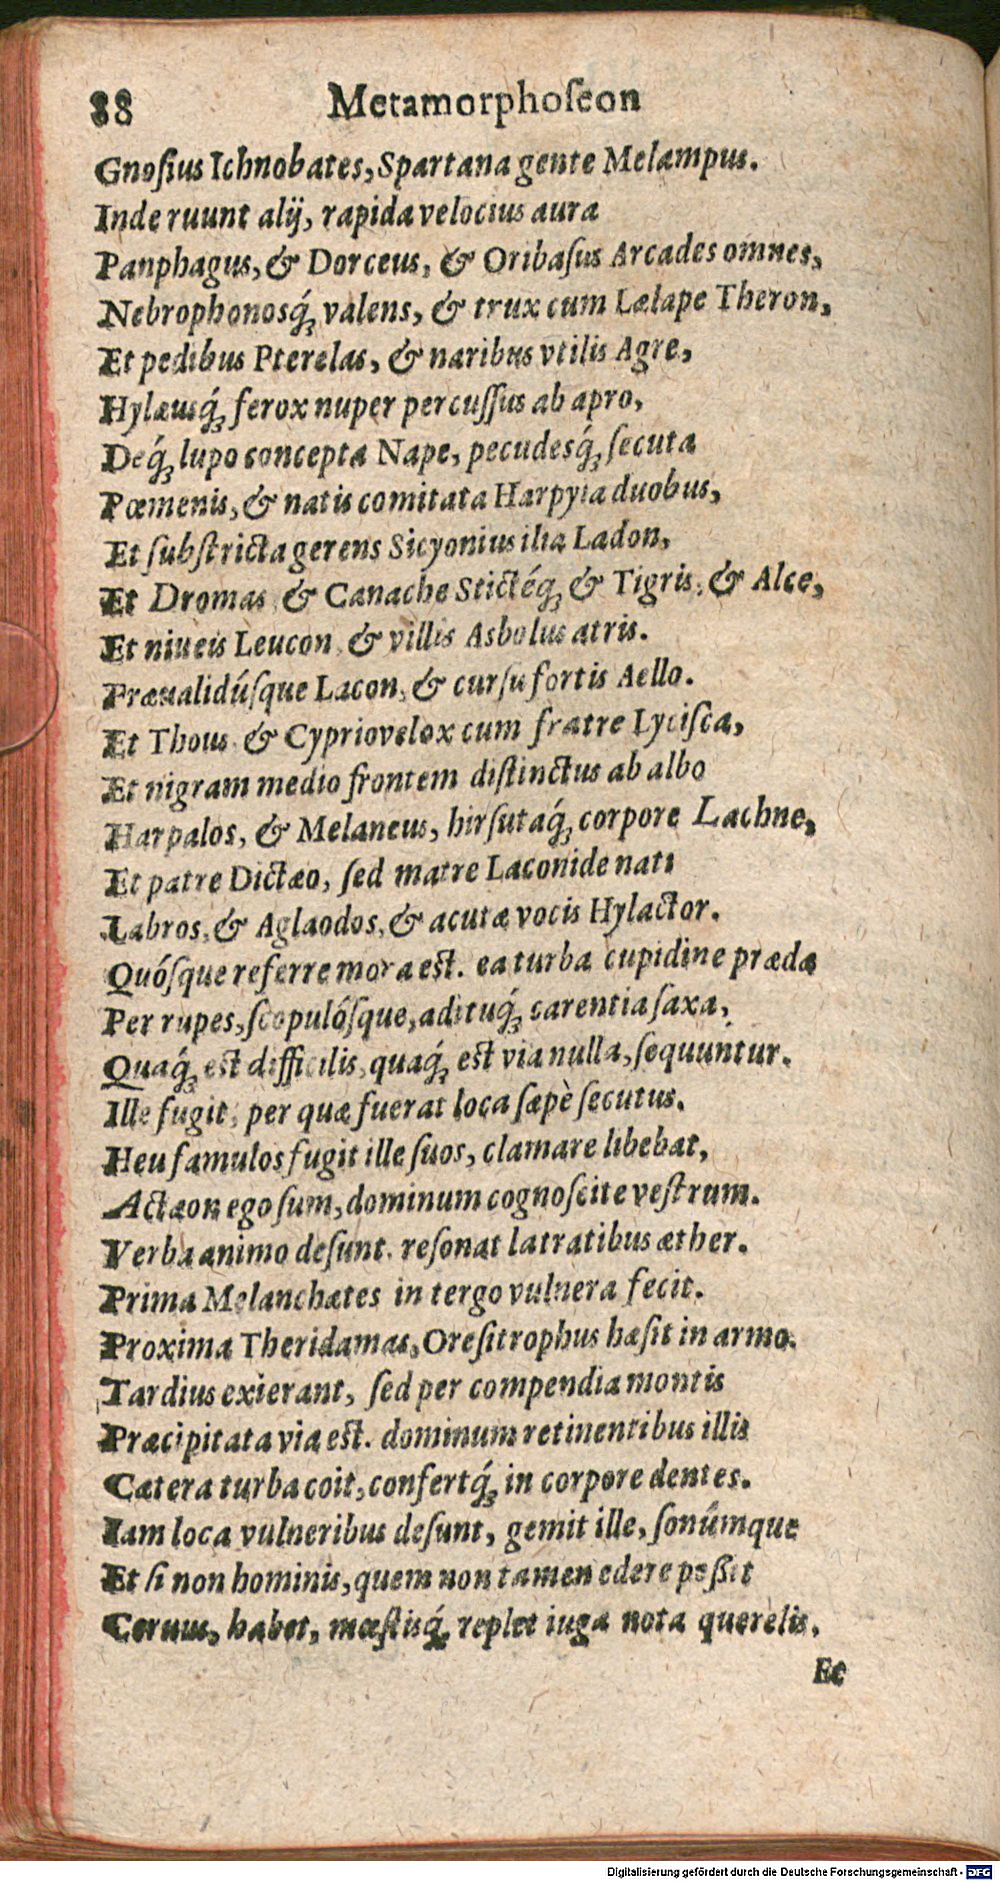 88 Metamorphoſeon
Gnoſius Ichnobates, Spartana gente Melampus.
Inde ruunt alij, rapida velocius aura
Panphagus, & Dorceus, & Oribaſus Arcades omnes,
Nebrophonosq́; valens, & trux cum Lælape Theron,
Et pedibus Pterelas, & naribus vtilis Agre,
Hylæusq́; ferox nuper percuſſus ab apro,
Deq́; lupo concepta Nape, pecudesq́; ſecuta
Pœmenis, & natis comitata Harpyia duobus,
Et ſubſtricta gerens Sicyonius ilia Ladon,
Et Dromas, & Canache Sticteq́; & Tigris, & Alce,
Et niueis Leucon, & villis Asbolus atris.
Præualidúſque Lacon, & curſu fortis Aello.
Et Thous & Cyprio velox cum fratre Lyciſca,
Et nigram medio frontem diſtinctus ab albo
Harpalos, & Melaneus, hirſutaq́; corpore Lachne,
Et patre Dictæo, ſed matre Laconide nati
Labros, & Aglaodos, & acutæ vocis Hylactor.
Quóſque referre mora est. ea turba cupidine præda
Per rupes, ſcopulóſque, adituq́; carentia ſaxa,
Quaq́; est difficilis, quaq́; est via nulla, ſequuntur.
Ille fugit, per quæ fuerat loca ſæpè ſecutus.
Heu famulos fugit ille ſuos, clamare libebat,
Actæon ego ſum, dominum cognoſcite veſtrum.
Verba animo deſunt. reſonat latratibus æther.
Prima Melanchætes in tergo vulnera fecit.
Proxima Theridamas, Oreſitrophus hæſit in armo.
Tardius exierant, ſed per compendia montis
Præcipitata via est. dominum retinentibus illis
Cætera turba coit, confertq́; in corpore dentes.
Iam loca vulneribus deſunt, gemit ille, ſonúmque
Et ſi non hominis, quem non tamen edere poßit
Ceruus, habet, mœſtisq́; replet iuga nota querelis.
Et
Digitalisierung gefördert durch die Deutsche Forschungsgemeinschaft - DFG